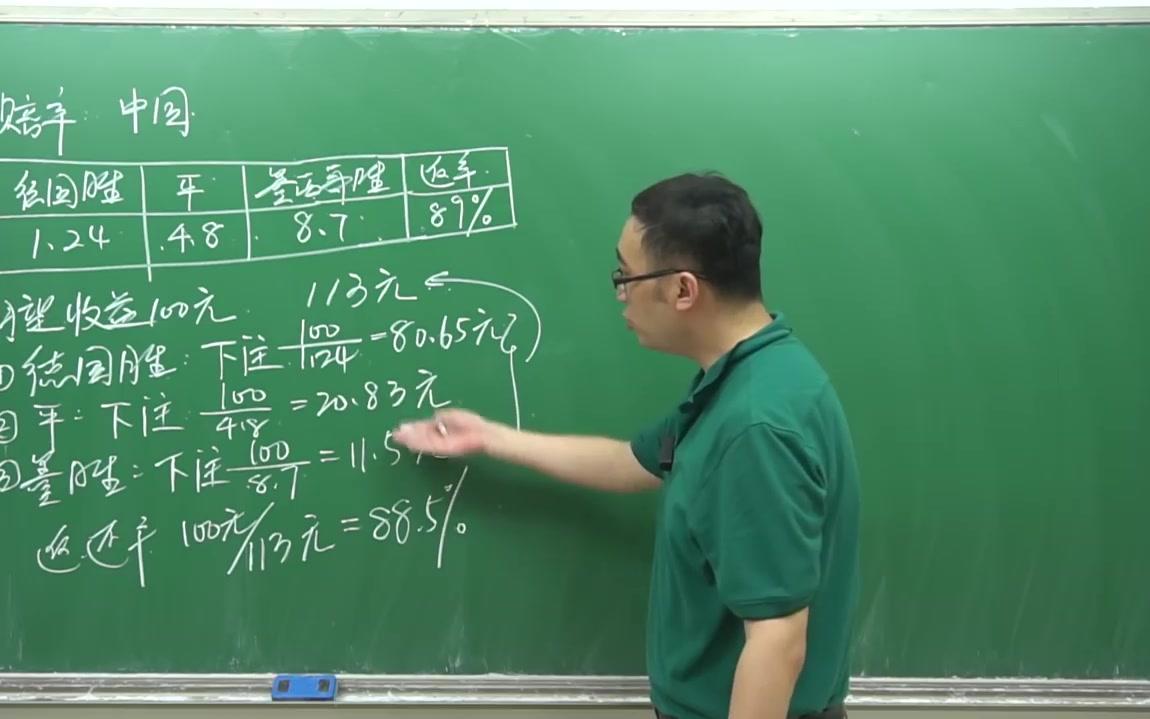 赔率: 中国
德国胜 平 墨西哥胜 返率
1.24 4.8 8.7 89%
期望收益100元 113元
① 德国胜: 下注 100/1.24 = 80.65元
② 平: 下注 100/4.8 = 20.83元
③ 墨胜: 下注 100/8.7 = 11.5
返还率 100元/113元 = 88.5%